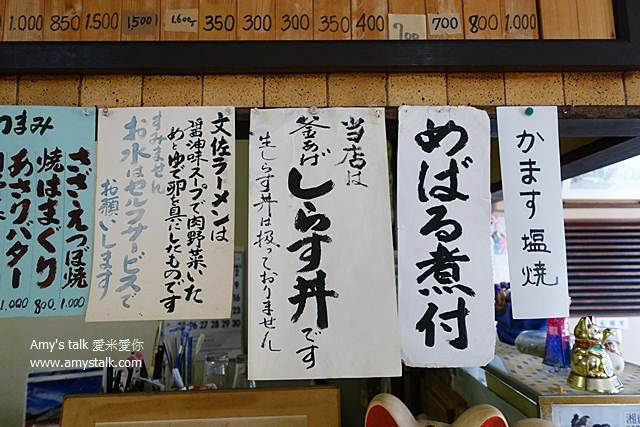 1.000 850 1.500 1,500 1.600 350 300 300 350 400 700 700 800 1.000
かます塩焼
めばる煮付
当店は
釜あげしらす丼です
生しらす丼は扱っておりません
文佐ラーメンは
醤油味スープで肉野菜いた
めとゆで卵を具にしたものです
すみません
お水はセルフサービスで
お願いします
つまみ
さざえつぼ焼 1.000
焼はまぐり 800
あさりバター 1,000
Amy's talk 愛米愛你
www.amystalk.com